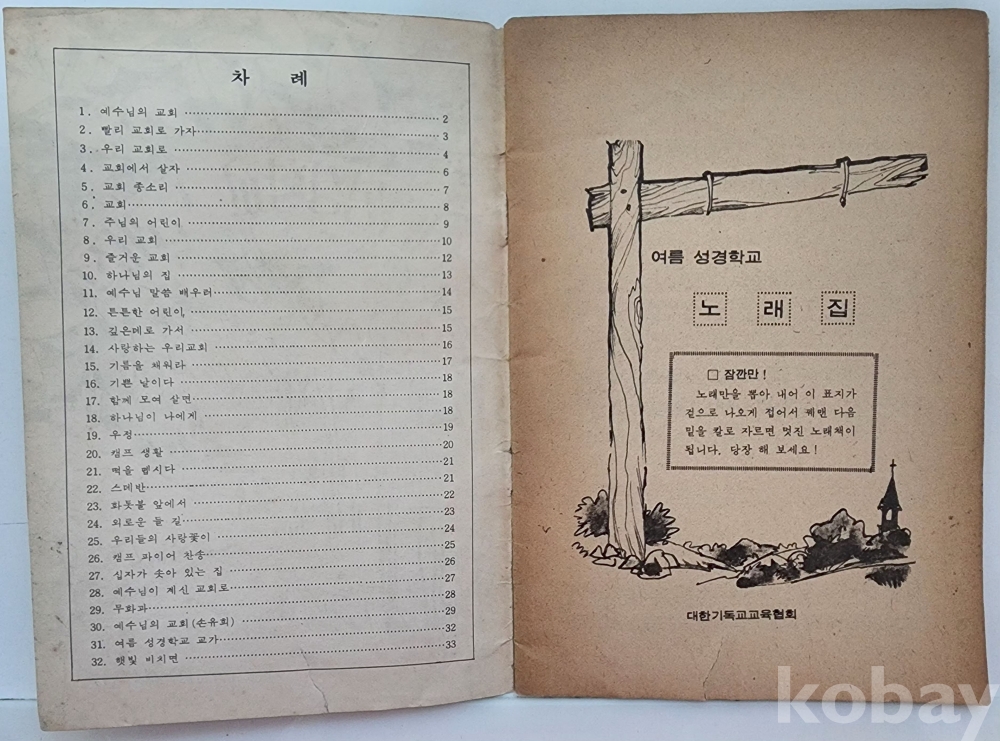 차 례
1. 예수님의 교회 2
2. 빨리 교회로 가자 3
3. 우리 교회로 4
4. 교회에서 살자 6
5. 교회 종소리 7
6. 교회 8
7. 주님의 어린이 9
8. 우리 교회 10
9. 즐거운 교회 12
10. 하나님의 집 13
11. 예수님 말씀 배우러 14
12. 튼튼한 어린이 15
13. 깊은데로 가서 15
14. 사랑하는 우리교회 16
15. 기름을 채워라 17
16. 기쁜 날이다 18
17. 함께 모여 살면 18
18. 하나님이 나에게 18
19. 우정 19
20. 캠프 생활 20
21. 떡을 뗍시다 21
22. 스데반 21
23. 화톳불 앞에서 22
24. 외로운 들 길 23
25. 우리들의 사랑꽃이 24
26. 캠프 파이어 찬송 25
27. 십자가 솟아 있는 집 26
28. 예수님이 계신 교회로 27
29. 무화과 28
30. 예수님의 교회(손유희) 29
31. 여름 성경학교 교가 32
32. 햇빛 비치면 33
여름 성경학교
노 래 집
□ 잠깐만!
노래만을 뽑아 내어 이 표지가
겉으로 나오게 접어서 꿰맨 다음
밑을 칼로 자르면 멋진 노래책이
됩니다. 당장 해 보세요!
대한기독교교육협회
kobay